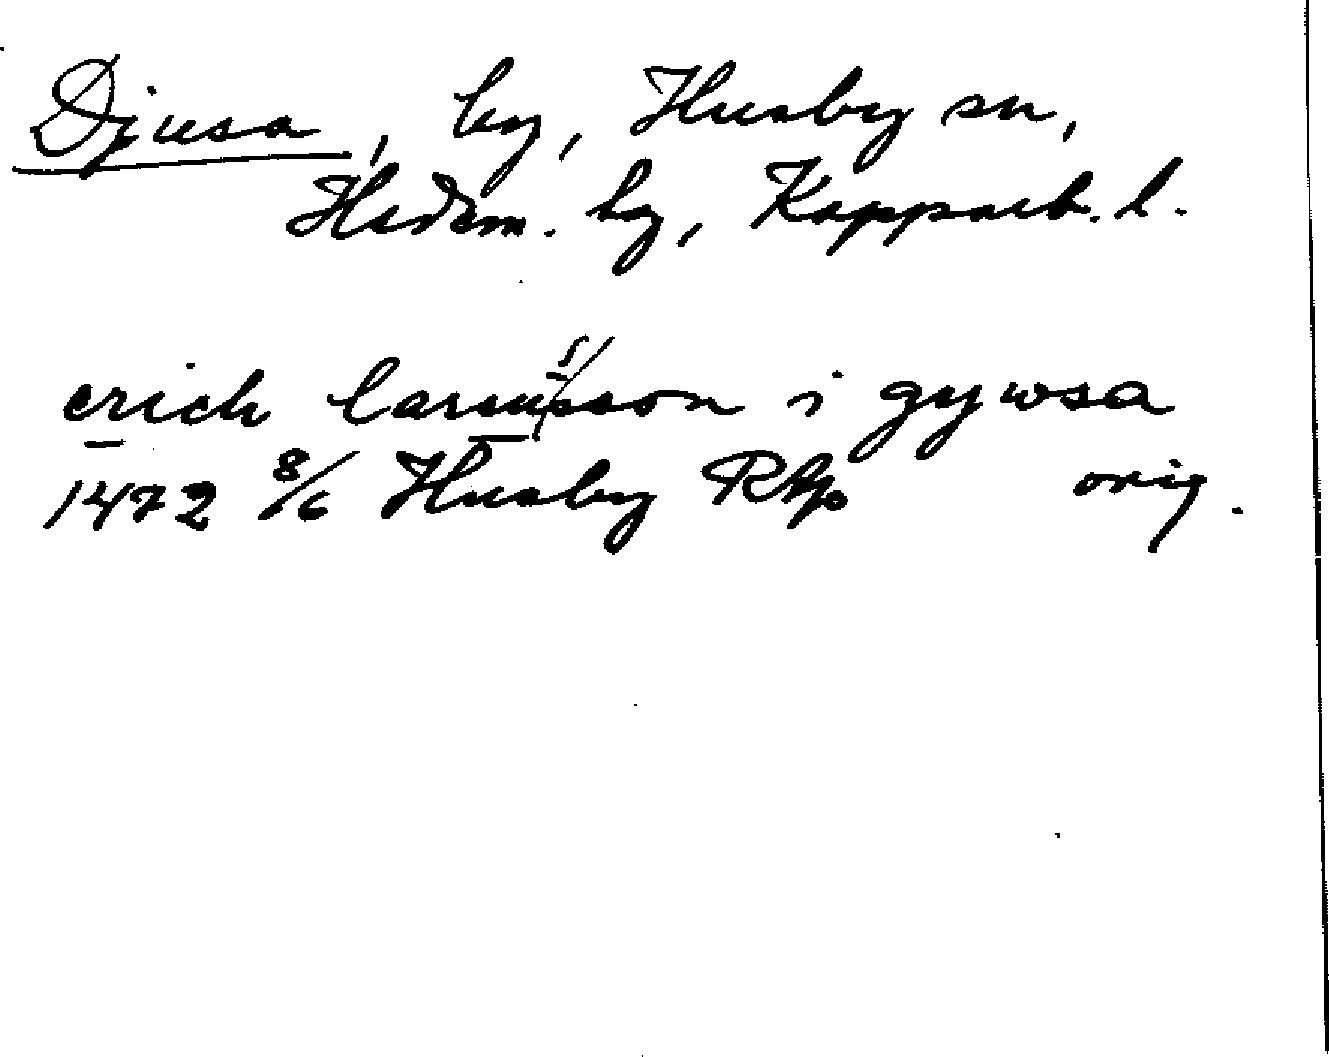 Djusa, by, Husby sn,
Hedem. by, Kopparb. l.
erich larensson i gywsa
1472 8/6 Husby Rkp orig.